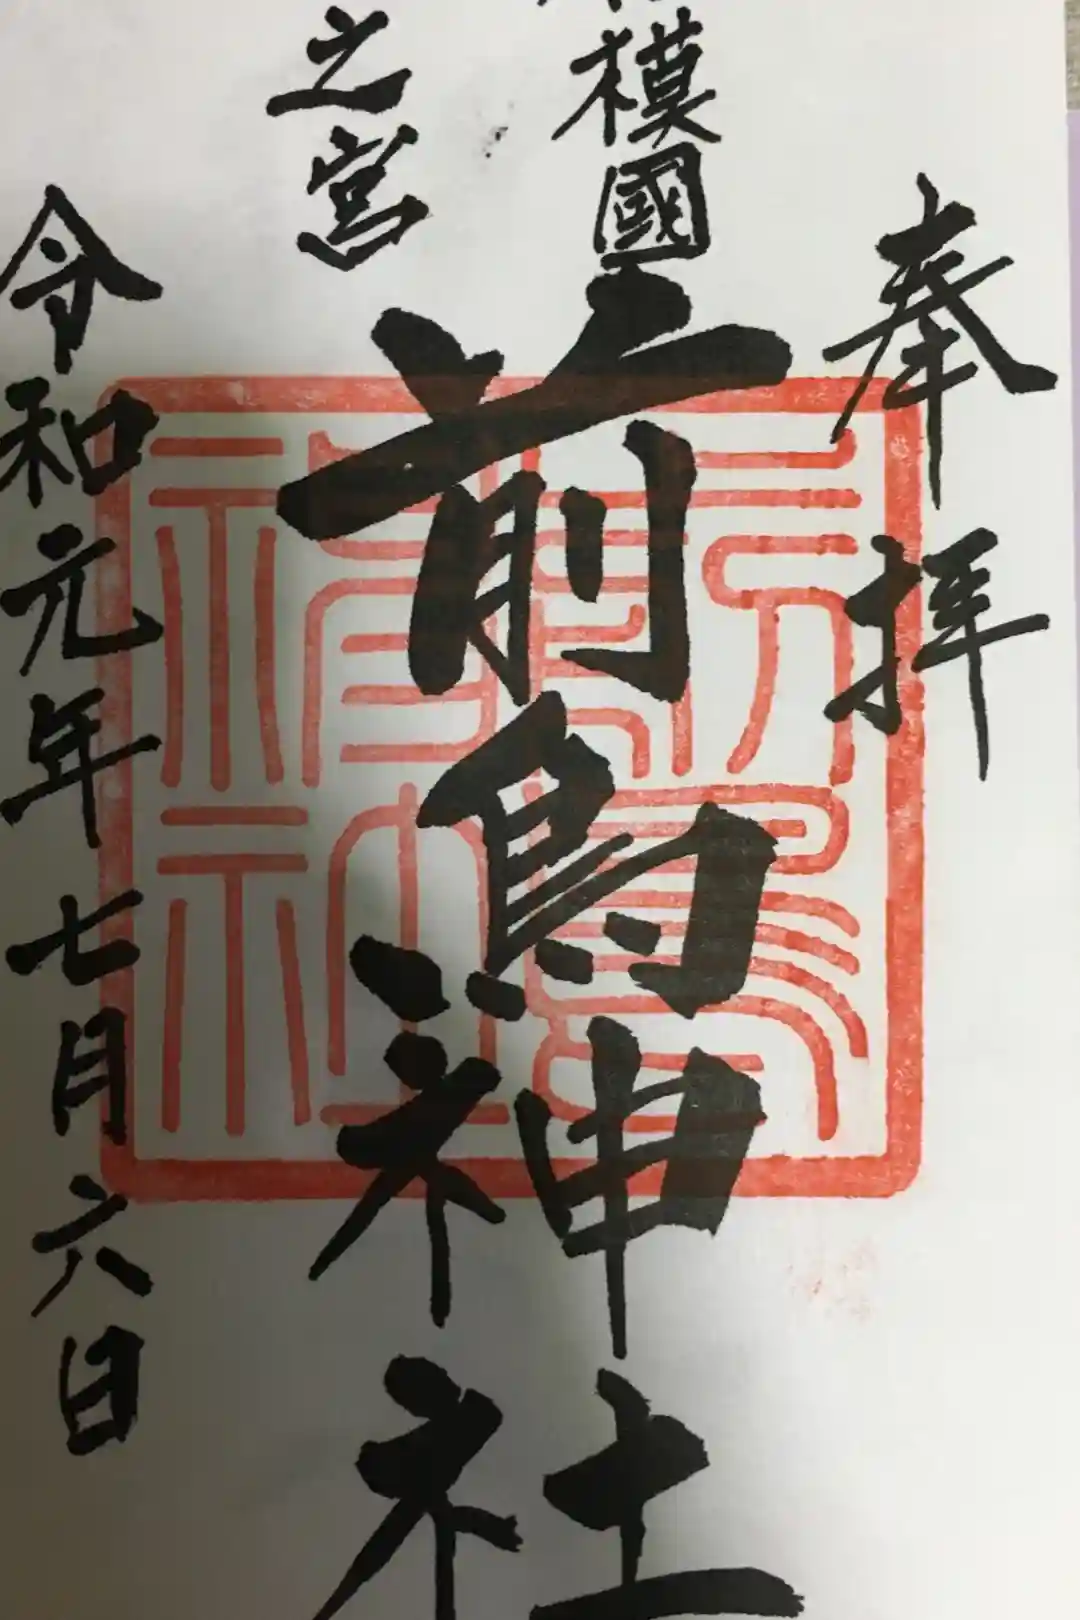 奉拝
模國
之宮
前鳥神社
令和元年七月六日